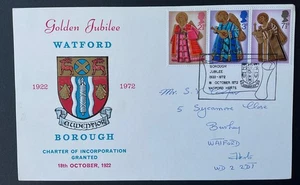 Golden Jubilee
WATFORD
1922 1972
AUDENTIOR
BOROUGH
CHARTER OF INCORPORATION
GRANTED
18th OCTOBER, 1922
BOROUGH
JUBILEE
1922-1972
OCTOBER 1972
WATFORD HERTS
Mr. S.
5 Sycamore Close
Bushey
WATFORD
Herts
WD2